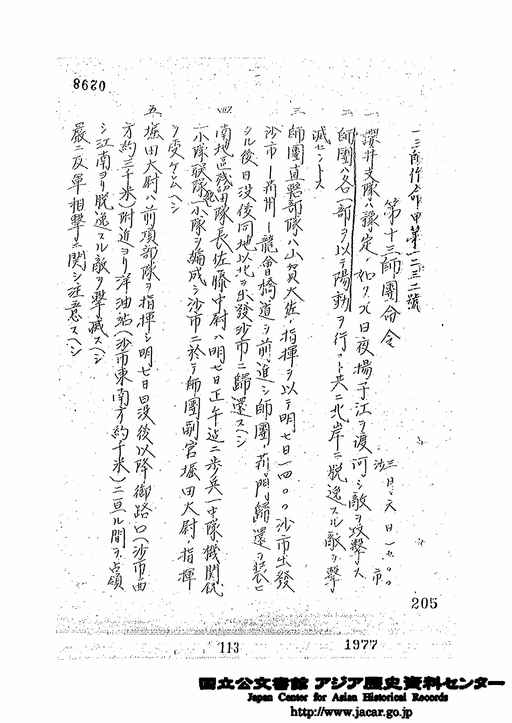 0298
一三師作命甲第一二三二號
第十三師團命令
三月六日一七〇〇
沙市
一 櫻井支隊ハ豫定ノ如ク北日夜揚子江ヲ渡河シ敵ヲ攻撃ス
二 師團ハ各一部ヲ以テ陽動ヲ行フト共ニ北岸ニ脱逸スル敵ヲ撃
滅セントス
三 師團直轄部隊ハ山賀大佐ノ指揮ヲ以テ明七日一四〇〇沙市出發
沙市ー荊州ー龍會橋道ヲ前進シ師團ノ荊門歸還ヲ装ヒ
シル後日没後同地以北ヲ出發沙市ニ歸還スヘシ
四 南地區隊長佐藤中尉ハ明七日正午迄ニ歩兵一中隊機關銃
一小隊聯隊砲一小隊ヲ編成シ沙市ニ於テ師團副官堀田大尉ノ指揮
ヲ受ケシムヘシ
五 堀田大尉ハ前項部隊ヲ指揮シ明七日日没後以降御路口(沙市西
方約三千米)附近ヨリ洋油站(沙市東南方約千米)ニ亘ル間ヲ占領
シ江南ヨリ脱逸スル敵ヲ撃滅スヘシ
嚴ニ友軍相撃ニ関シ注意スヘシ
205
113
1977
国立公文書館 アジア歴史資料センター
Japan Center for Asian Historical Records
http://www.jacar.go.jp